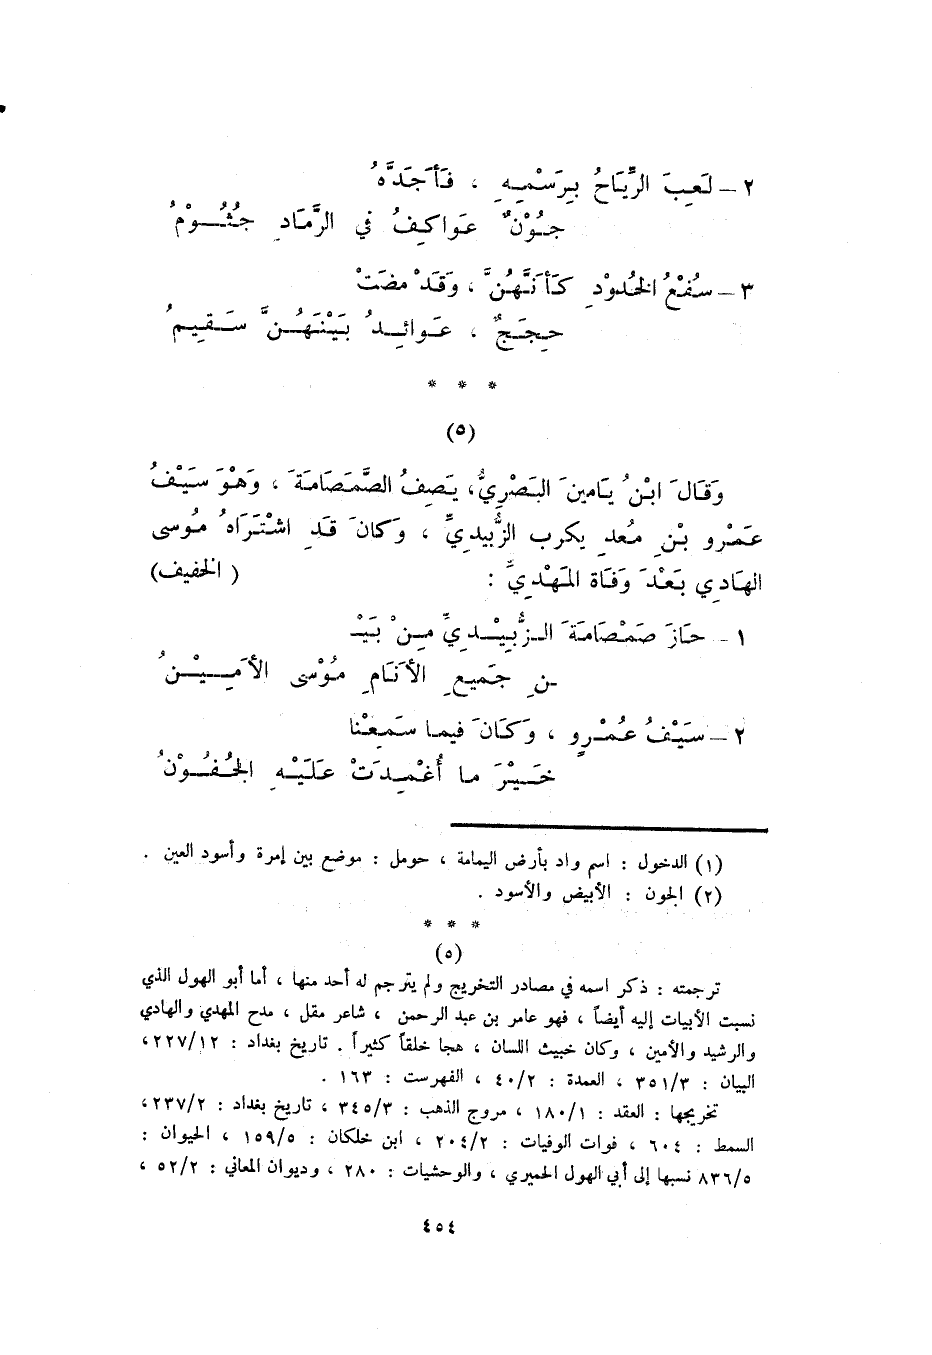 ٢ – لَعِبَ الرِّيَاحُ بِرَسْمِهِ ، فَأَجَدَّهُ
جُوْنٌ عَوَاكِفُ في الرَّمَادِ جُثُوْمُ
٣ – سُفْعُ الخُدُوْدِ كَأَنَّهُنَّ ، وَقَدْ مضَتْ
حِجَجٌ ، عَوائِدُ بَيْنَهُنَّ سَقِيمُ
* * *
(٥)
وَقَالَ ابْنُ يَامينَ البَصْرِيُّ، يَصِفُ الصَّمَصَامَةَ ، وَهْوَ سَيْفُ
عَمْرو بْنِ مُعدِ يكرب الزُّبيديِّ ، وَكانَ قَدِ اشْتَرَاهُ مُوسى
الهَادِي بَعْدَ وَفَاة المَهْدِيِّ : ( الخفيف)
١ – حَازَ صَمْصَامَةَ الزُّبِيْدِيِّ مِنْ بَيْـ
ـنِ جَميعِ الأَنَامِ مُوْسى الأَمِيْنُ
٢ – سَيْفُ عُمْرٍو ، وَكَانَ فيما سَمِعْنا
خَيْرَ ما أُغْمِدَتْ عَلَيْهِ الجُفُوْنُ
(١) الدخول : اسم واد بأرض اليمامة ، حومل : موضع بين إمرة وأسود العين .
(٢) الجون : الأبيض والأسود .
* * *
(٥)
ترجمته : ذكر اسمه في مصادر التخريج ولم يترجم له أحد منها ، أما أبو الهول الذي
نسبت الأبيات إليه أيضاً ، فهو عامر بن عبد الرحمن ، شاعر مقل ، مدح المهدي والهادي
والرشيد والأمين ، وكان خبيث اللسان ، هجا خلقاً كثيراً . تاريخ بغداد : ٢٢٧/١٢ ،
البيان : ٣٥١/٣ ، العمدة : ٤٠/٢ ، الفهرست : ١٦٣ .
تخريجها : العقد : ١٨٠/١ ، مروج الذهب : ٣٤٥/٣ ، تاريخ بغداد : ٢٣٧/٢ ،
السمط : ٦٠٤ ، فوات الوفيات : ٢٠٤/٢ ، ابن خلكان : ١٥٩/٥ ، الحيوان :
٨٣٦/٥ نسبها إلى أبي الهول الحميري ، والوحشيات : ٢٨٠ ، وديوان المعاني : ٥٢/٢ ،
٤٥٤